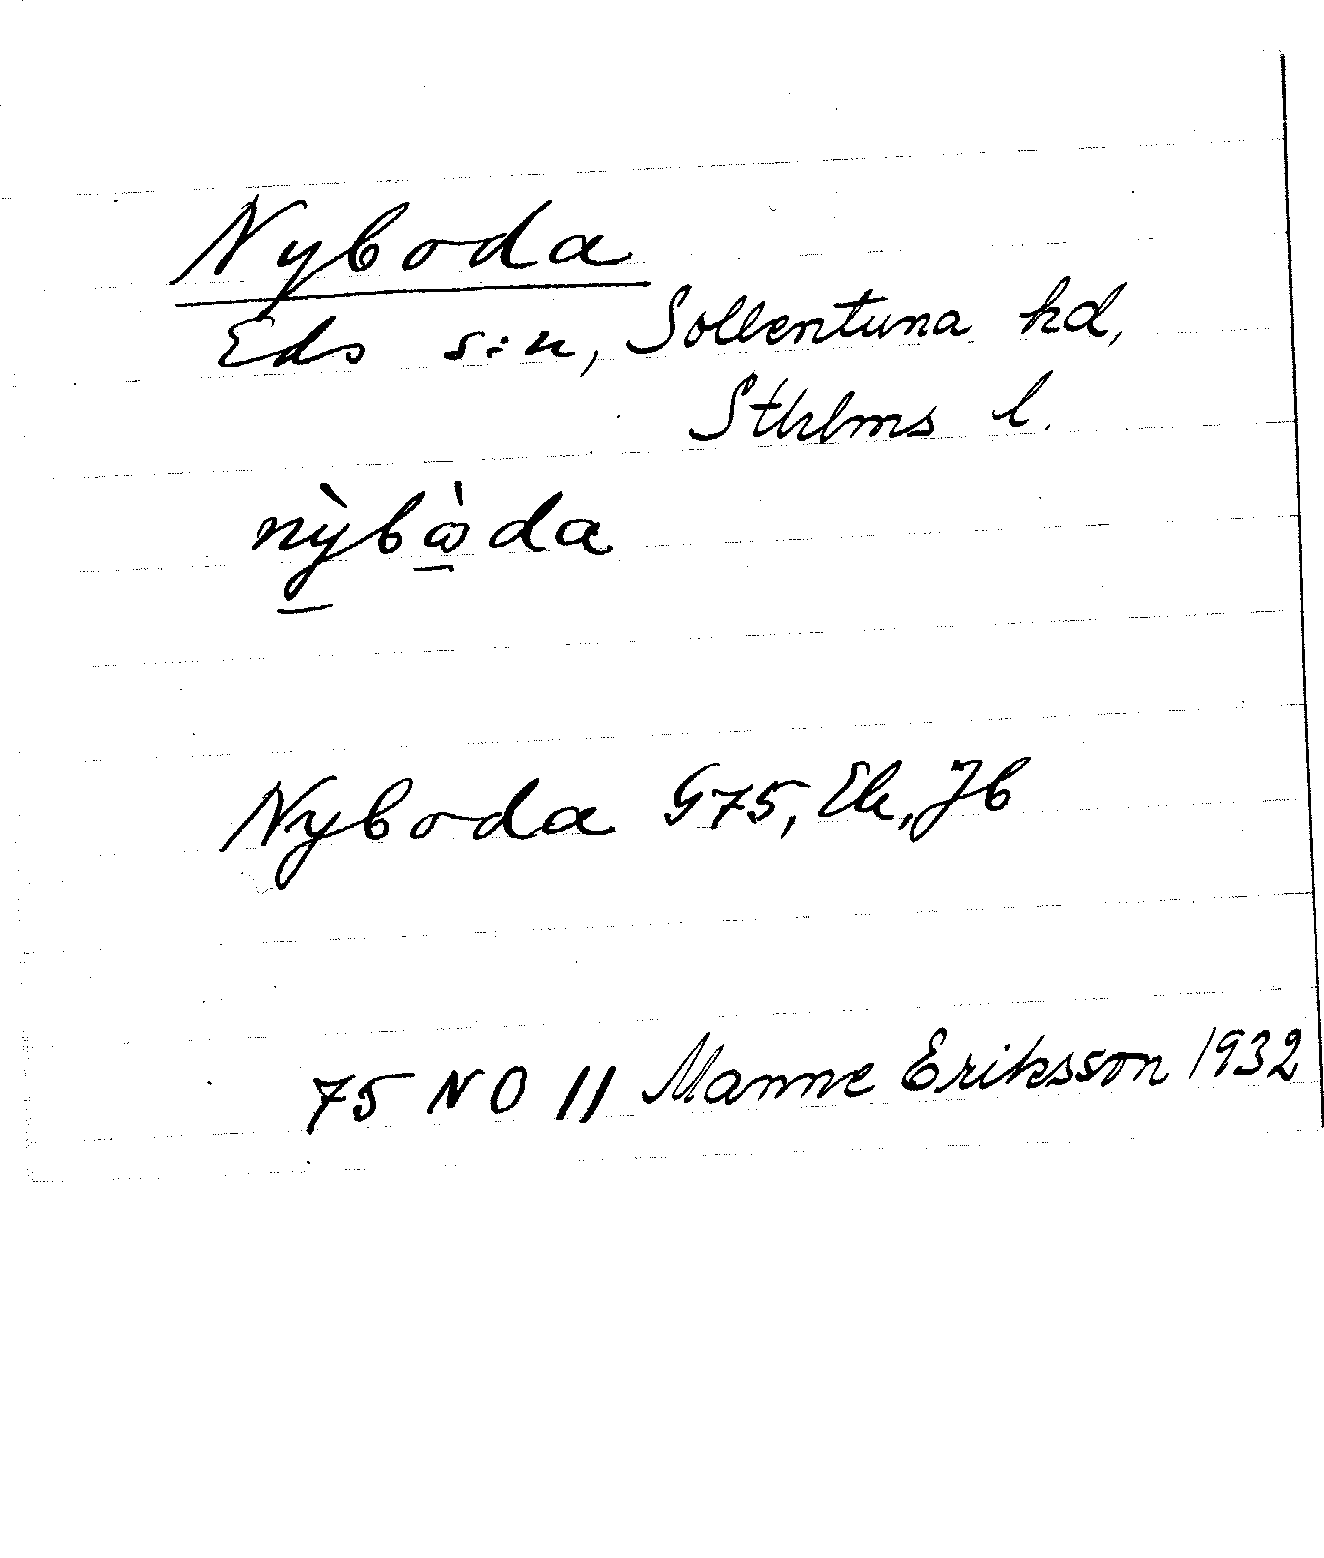 Nyboda
Eds s:n, Sollentuna hd,
Sthlms l.
nỳbὼda
Nyboda G75, Ek, Jb
75 NO 11 Manne Eriksson 1932